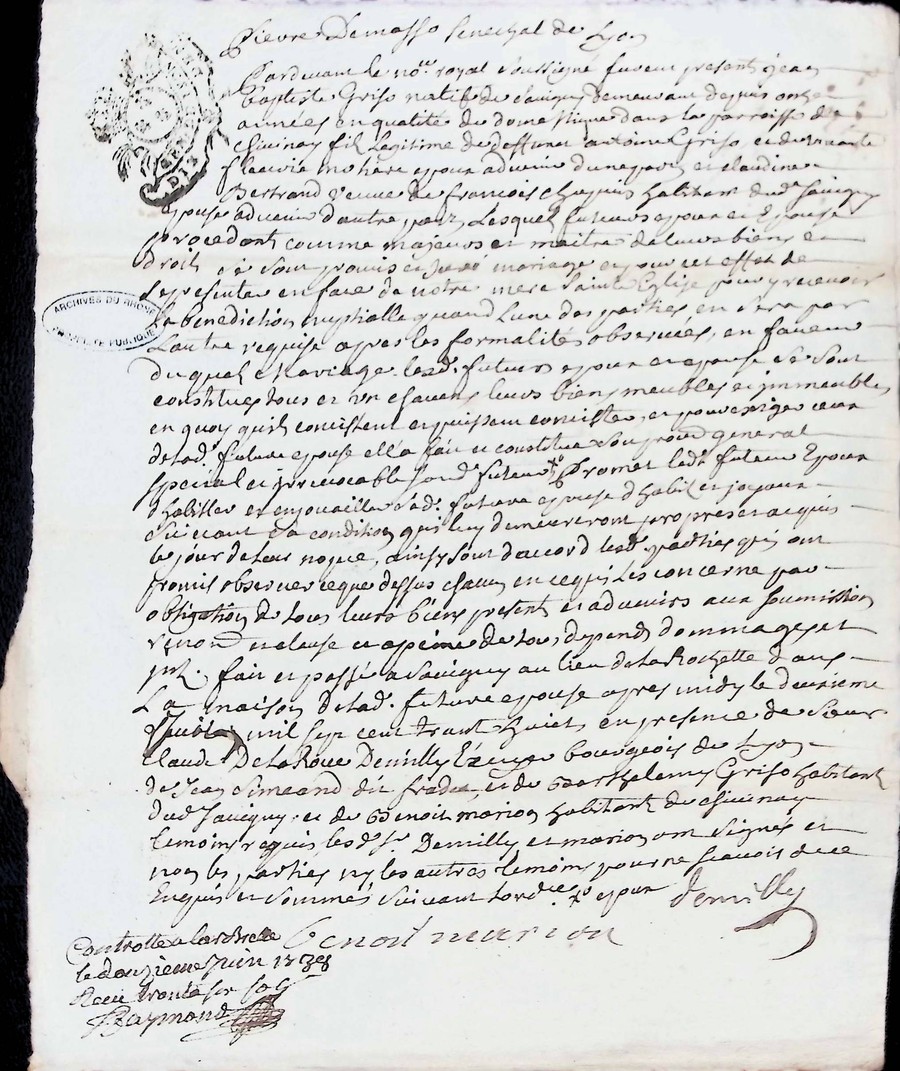 Pierre Demasso Senechal de Lyon
Pardevant le no.re royal soussigné furent present jean
Baptiste Griso natif de Savigny demeurant depuis onze
années en qualité de domestique dans la parroisse de
Chivinay fil Legitime de deffunct antoine Griso et de vivante
fleurie epoux advenir d'une part, et claudine
Bertrand veuve de francois Chapuis habitant dud. Savigny
epouse advenir d'autre part, Lesquel futurs epoux et Epouse
procedant comme majeurs et maitre de leurs biens et
droit se sont promis et juré mariage et pour cet effet de
se presenter en face de notre mere Sainte Eglise pour y recevoir
La benediction nuptialle quand L'une des parties en sera par
L'autre requise apres les formalités observées, en faveur
du quel mariage lesd. futurs epoux et epouse se sont
constitues tous et un chacuns leurs biens meubles et immeubles
en quoy quils consistent et puissent concister, et pour exiger ceux
de lad. future epouse elle a fait et constitué son procur general
special et irrevocable sond. futur Promet led. futur Epoux
d'habiller et enjouailler sad. future epouse d'habit et joyaux
suivant sa condition qui luy demeureront propres et acquis
le jour de leur nopce, ainsy sont d'accord lesd. parties qui ont
promis observer ce que dessus chacun en ce qui les concerne par
obligation de tous leurs biens present et advenirs aux soumission
renon et clause et a peine de tous depends dommages et
int. fait et passé a Savigny au lieu de La Rochette dans
La maison de lad. future epouse apres midy le deuxieme
mil sept cent trant huict, en presence de Sieur
claude De la Roue Demilly Ecuyer bourgeois de Lyon
de Jean Simeand dit et de Barthelemy Griso habitant
dud. Savigny, et de Benoit marion habitant de chivinay
temoins requis les d. Sr. Demilly et marion ont signés et
non les parties ny les autres temoins pour ne scavoir de ce
Enquis et sommés suivant l'ord.ce epoux
demilly
benoit marion
Controllé a
le douzieme juin 1738
Receu
Raymond
ARCHIVES DU RHONE
PUBLIQUE
GEN
DIX